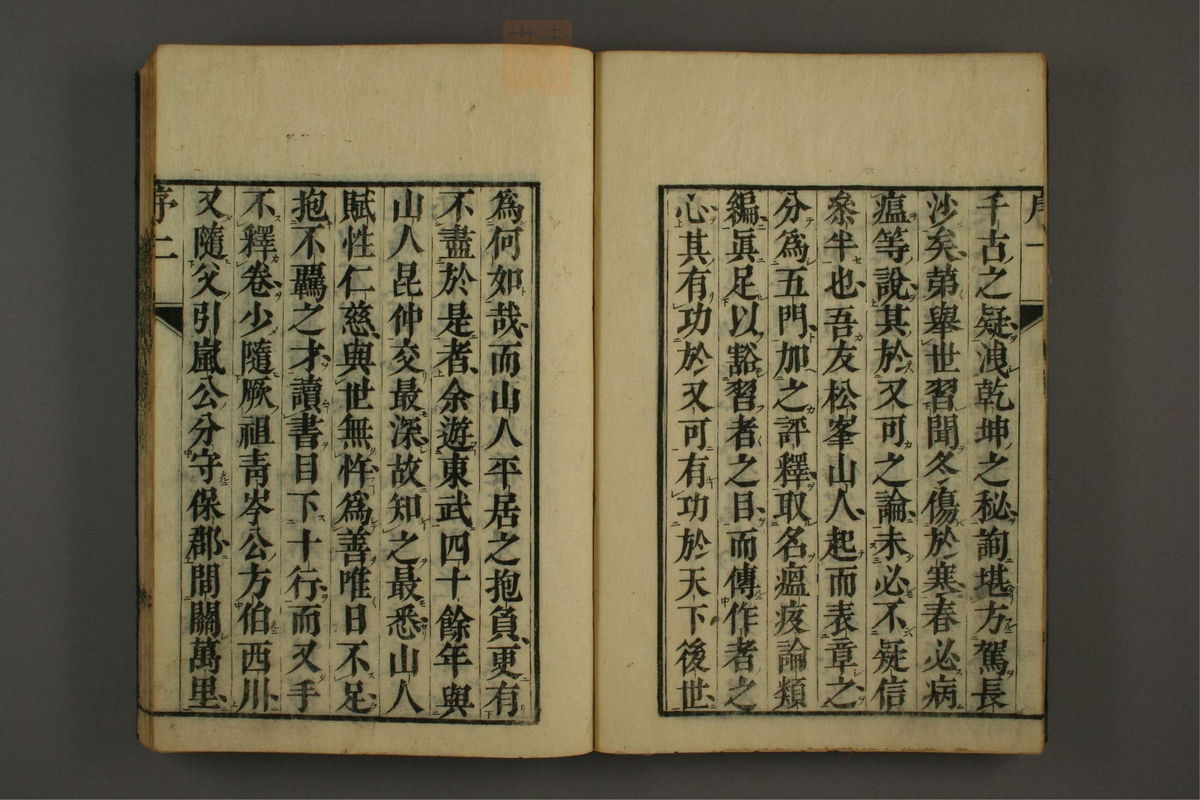 序一
千古之疑洩乾坤之秘詢堪方駕長
沙矣第舉世習聞冬傷於寒春必病
瘟等說其於又可之論未必不疑信
參半也吾友松峯山人起而表章之
分爲五門加之評釋取名瘟疫論類
編眞足以豁習者之目而傳作者之
心其有功於又可有功於天下後世
爲何如哉而山人平居之抱負更有
不盡於是者余遊東武四十餘年與
山人昆仲交最深故知之最悉山人
賦性仁慈與世無忤爲善唯日不足
抱不羈之才讀書目下十行而又手
不釋卷少隨厥祖靑岑公方伯西川
又隨父引嵐公分守保郡間關萬里
序二